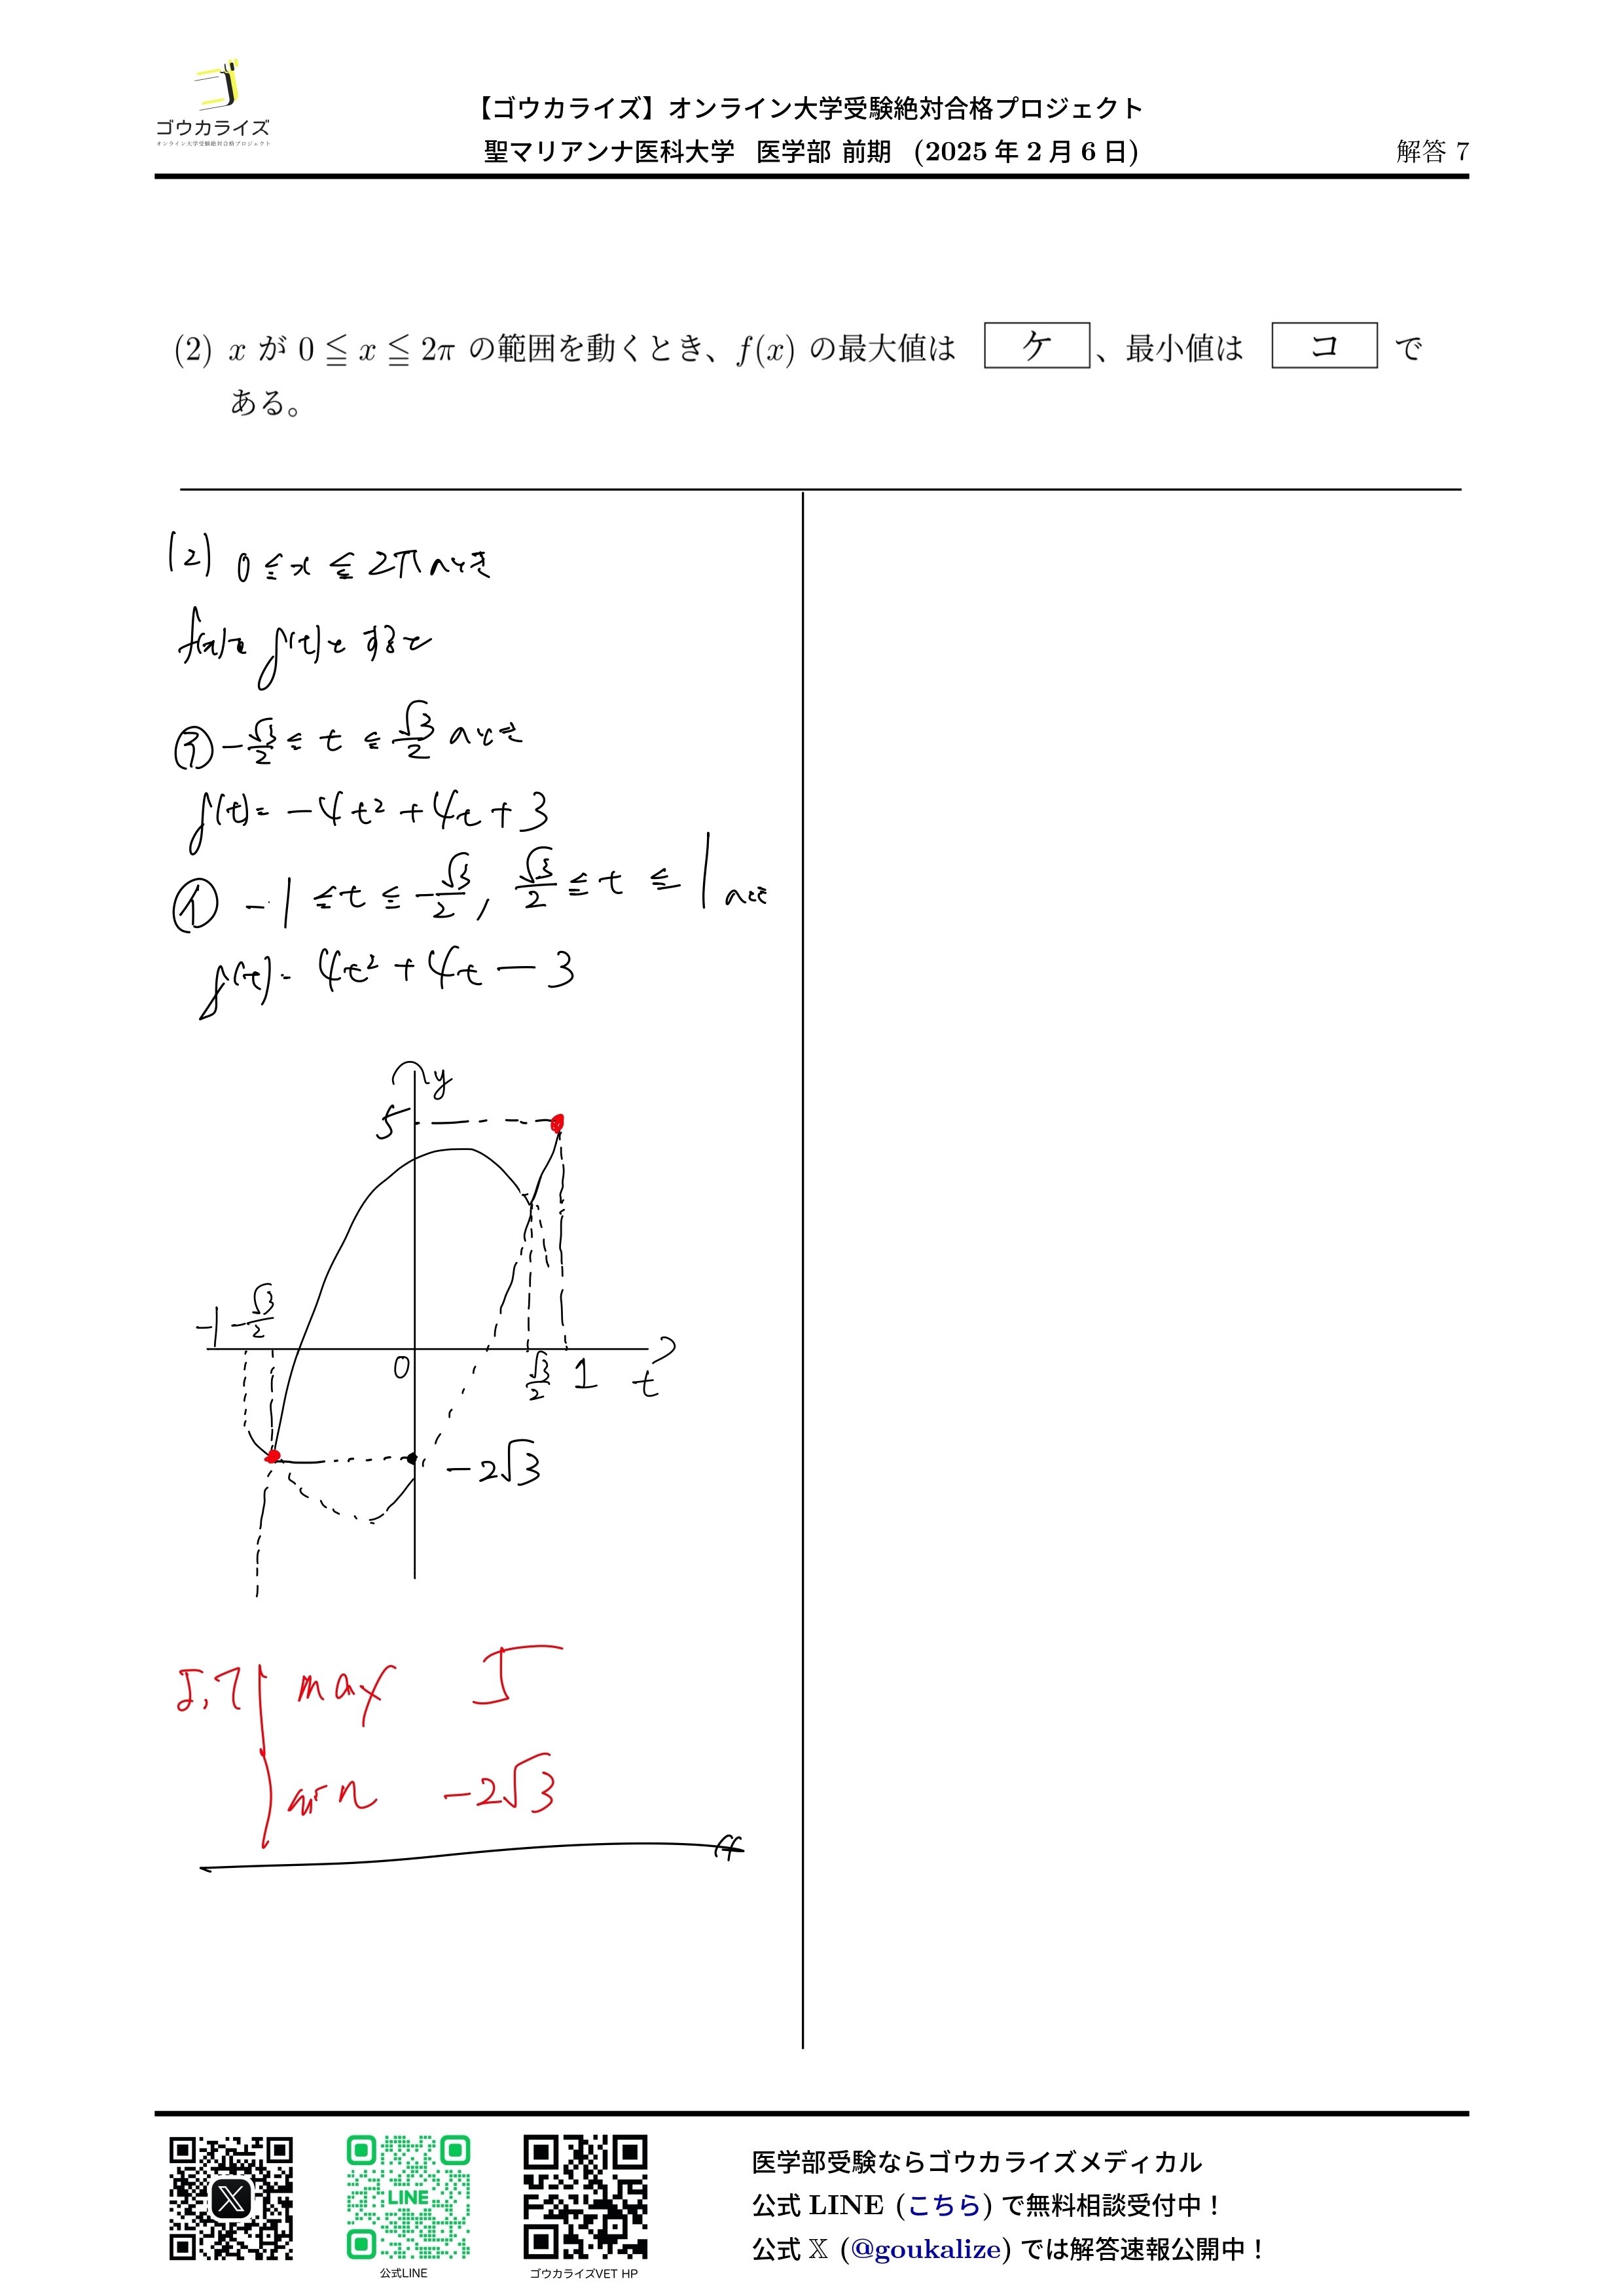 ゴウカライズ
オンライン大学受験絶対合格プロジェクト
【ゴウカライズ】オンライン大学受験絶対合格プロジェクト
聖マリアンナ医科大学 医学部 前期 (2025 年 2 月 6 日)
解答 7
(2) x が 0 ≦ x ≦ 2π の範囲を動くとき、f(x) の最大値は ケ 、最小値は コ で
ある。
(2) 0 ≦ x ≦ 2π のとき
f(x)を g(t)とすると
㋐ -√3/2 ≦ t ≦ √3/2 のとき
g(t) = -4t² + 4t + 3
㋑ -1 ≦ t ≦ -√3/2, √3/2 ≦ t ≦ 1 のとき
g(t) = 4t² + 4t - 3
y
5
-1 -√3/2
0 √3/2 1 t
-2√3
よって max 5
min -2√3
LINE
公式LINE
ゴウカライズVET HP
医学部受験ならゴウカライズメディカル
公式 LINE (こちら) で無料相談受付中！
公式 𝕏 (@goukalize) では解答速報公開中！